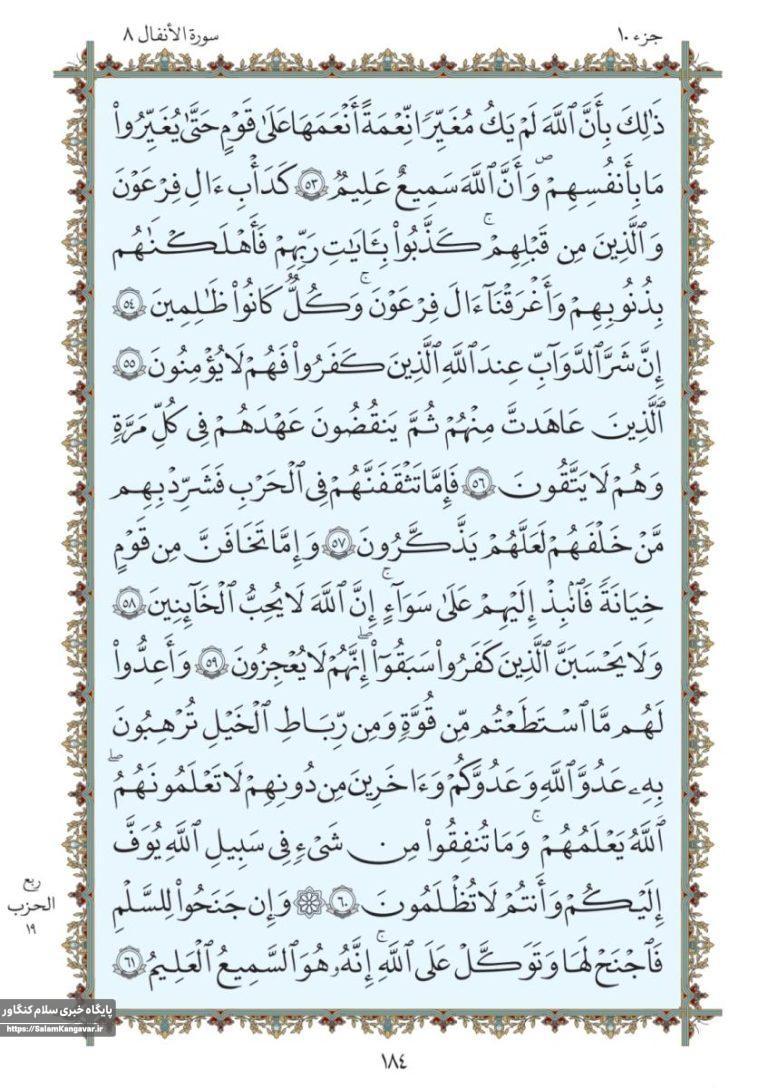 جزء ١٠
سورة الأنفال ٨
ذَٰلِكَ بِأَنَّ ٱللَّهَ لَمْ يَكُ مُغَيِّرًا نِّعْمَةً أَنْعَمَهَا عَلَىٰ قَوْمٍ حَتَّىٰ يُغَيِّرُوا۟
مَا بِأَنفُسِهِمْ ۙ وَأَنَّ ٱللَّهَ سَمِيعٌ عَلِيمٌ ٥٣ كَدَأْبِ ءَالِ فِرْعَوْنَ
وَٱلَّذِينَ مِن قَبْلِهِمْ ۚ كَذَّبُوا۟ بِـَٔايَـٰتِ رَبِّهِمْ فَأَهْلَكْنَـٰهُم
بِذُنُوبِهِمْ وَأَغْرَقْنَآ ءَالَ فِرْعَوْنَ ۚ وَكُلٌّ كَانُوا۟ ظَـٰلِمِينَ ٥٤
إِنَّ شَرَّ ٱلدَّوَآبِّ عِندَ ٱللَّهِ ٱلَّذِينَ كَفَرُوا۟ فَهُمْ لَا يُؤْمِنُونَ ٥٥
ٱلَّذِينَ عَـٰهَدتَّ مِنْهُمْ ثُمَّ يَنقُضُونَ عَهْدَهُمْ فِى كُلِّ مَرَّةٍ
وَهُمْ لَا يَتَّقُونَ ٥٦ فَإِمَّا تَثْقَفَنَّهُمْ فِى ٱلْحَرْبِ فَشَرِّدْ بِهِم
مَّنْ خَلْفَهُمْ لَعَلَّهُمْ يَذَّكَّرُونَ ٥٧ وَإِمَّا تَخَافَنَّ مِن قَوْمٍ
خِيَانَةً فَٱنۢبِذْ إِلَيْهِمْ عَلَىٰ سَوَآءٍ ۚ إِنَّ ٱللَّهَ لَا يُحِبُّ ٱلْخَآئِنِينَ ٥٨
وَلَا يَحْسَبَنَّ ٱلَّذِينَ كَفَرُوا۟ سَبَقُوٓا۟ ۚ إِنَّهُمْ لَا يُعْجِزُونَ ٥٩ وَأَعِدُّوا۟
لَهُم مَّا ٱسْتَطَعْتُم مِّن قُوَّةٍ وَمِن رِّبَاطِ ٱلْخَيْلِ تُرْهِبُونَ
بِهِۦ عَدُوَّ ٱللَّهِ وَعَدُوَّكُمْ وَءَاخَرِينَ مِن دُونِهِمْ لَا تَعْلَمُونَهُمُ
ٱللَّهُ يَعْلَمُهُمْ ۚ وَمَا تُنفِقُوا۟ مِن شَىْءٍ فِى سَبِيلِ ٱللَّهِ يُوَفَّ
إِلَيْكُمْ وَأَنتُمْ لَا تُظْلَمُونَ ٦٠ ۞ وَإِن جَنَحُوا۟ لِلسَّلْمِ
فَٱجْنَحْ لَهَا وَتَوَكَّلْ عَلَى ٱللَّهِ ۚ إِنَّهُۥ هُوَ ٱلسَّمِيعُ ٱلْعَلِيمُ ٦١
ربع
الحزب
١٩
پایگاه خبری سلام کنگاور
https://SalamKangavar.ir
١٨٤